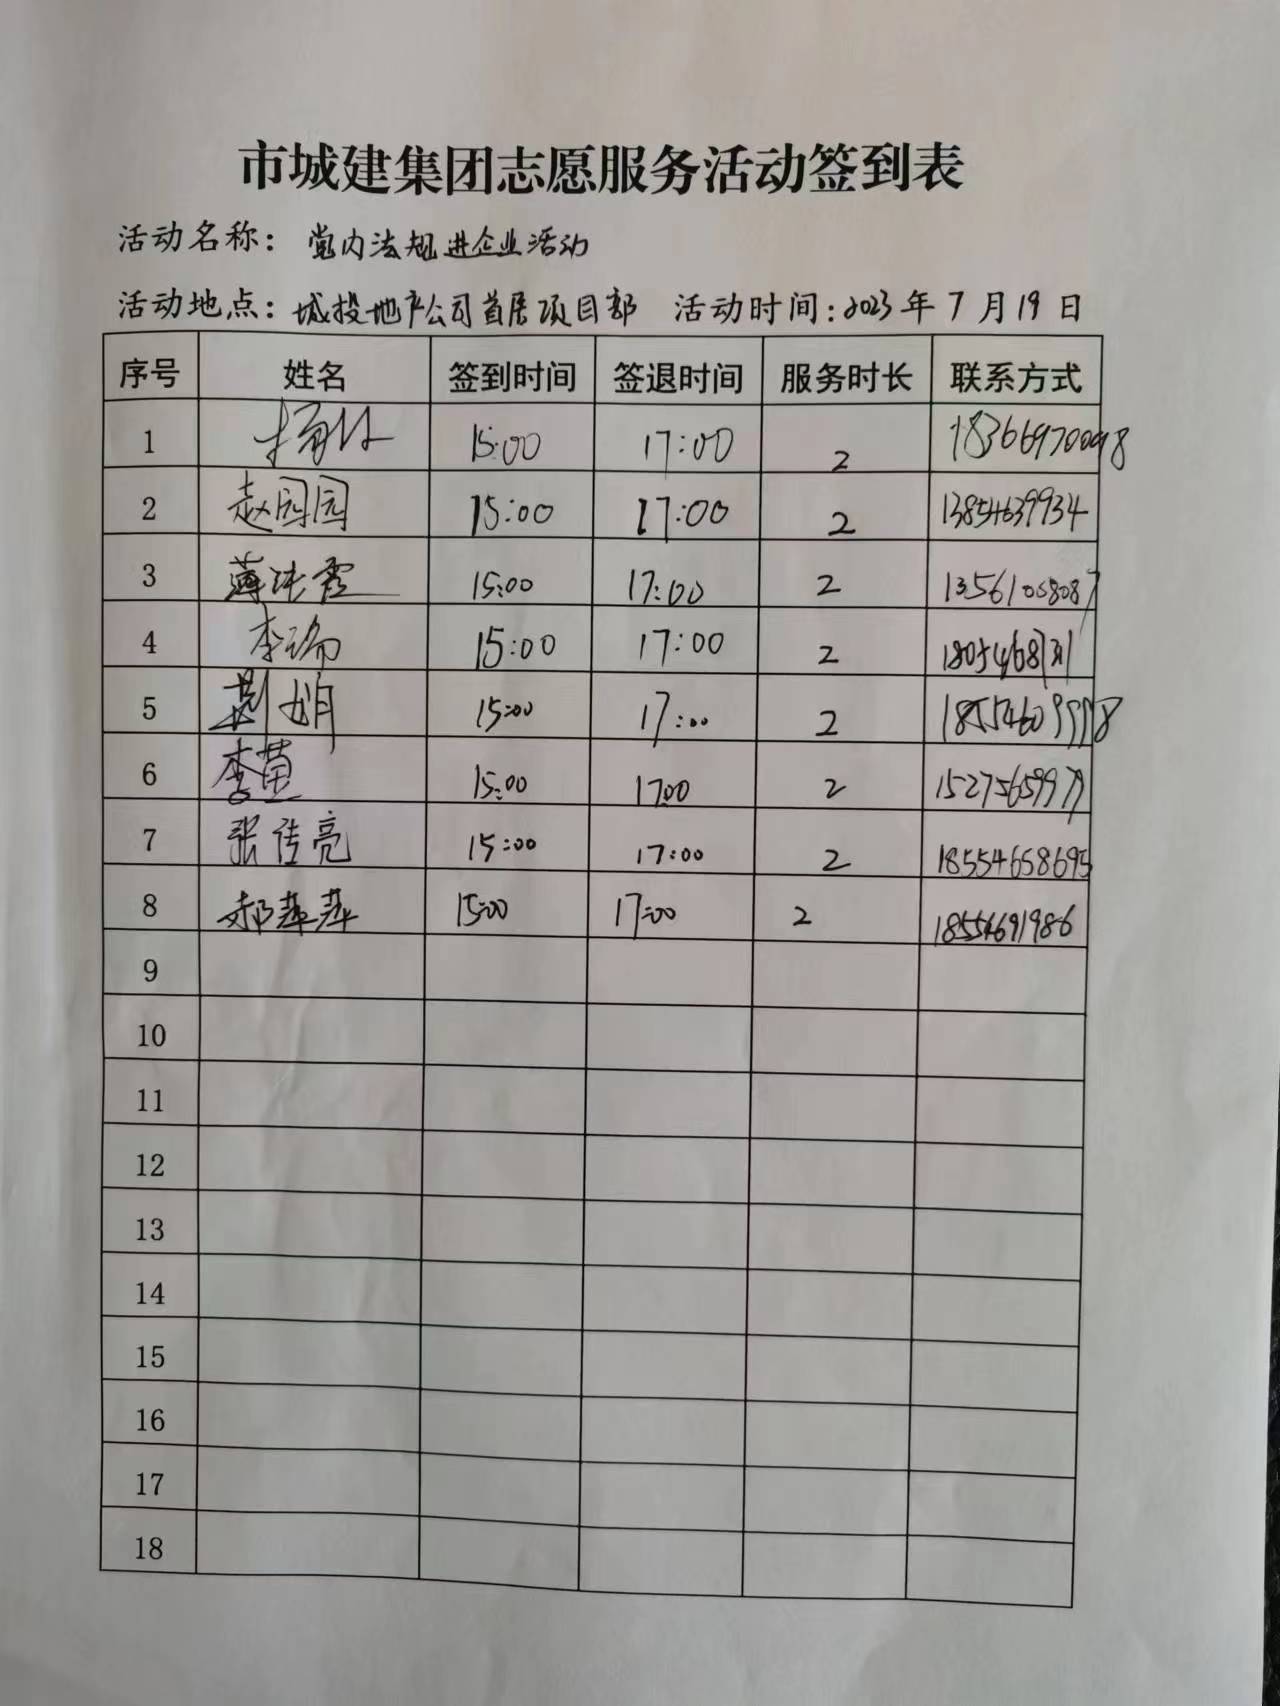 市城建集团志愿服务活动签到表
活动名称：党内法规进企业活动
活动地点：城投地产公司首居项目部 活动时间：2023年7月19日
序号 姓名 签到时间 签退时间 服务时长 联系方式
1 15:00 17:00 2
2 赵园园 15:00 17:00 2 13854639934
3 15:00 17:00 2 13561068087
4 李瑞 15:00 17:00 2
5 娟 15:00 17:00 2 18554609998
6 李苗 15:00 17:00 2 15275659979
7 张传亮 15:00 17:00 2 18554658695
8 郝萍萍 15:00 17:00 2 18554691986
9
10
11
12
13
14
15
16
17
18